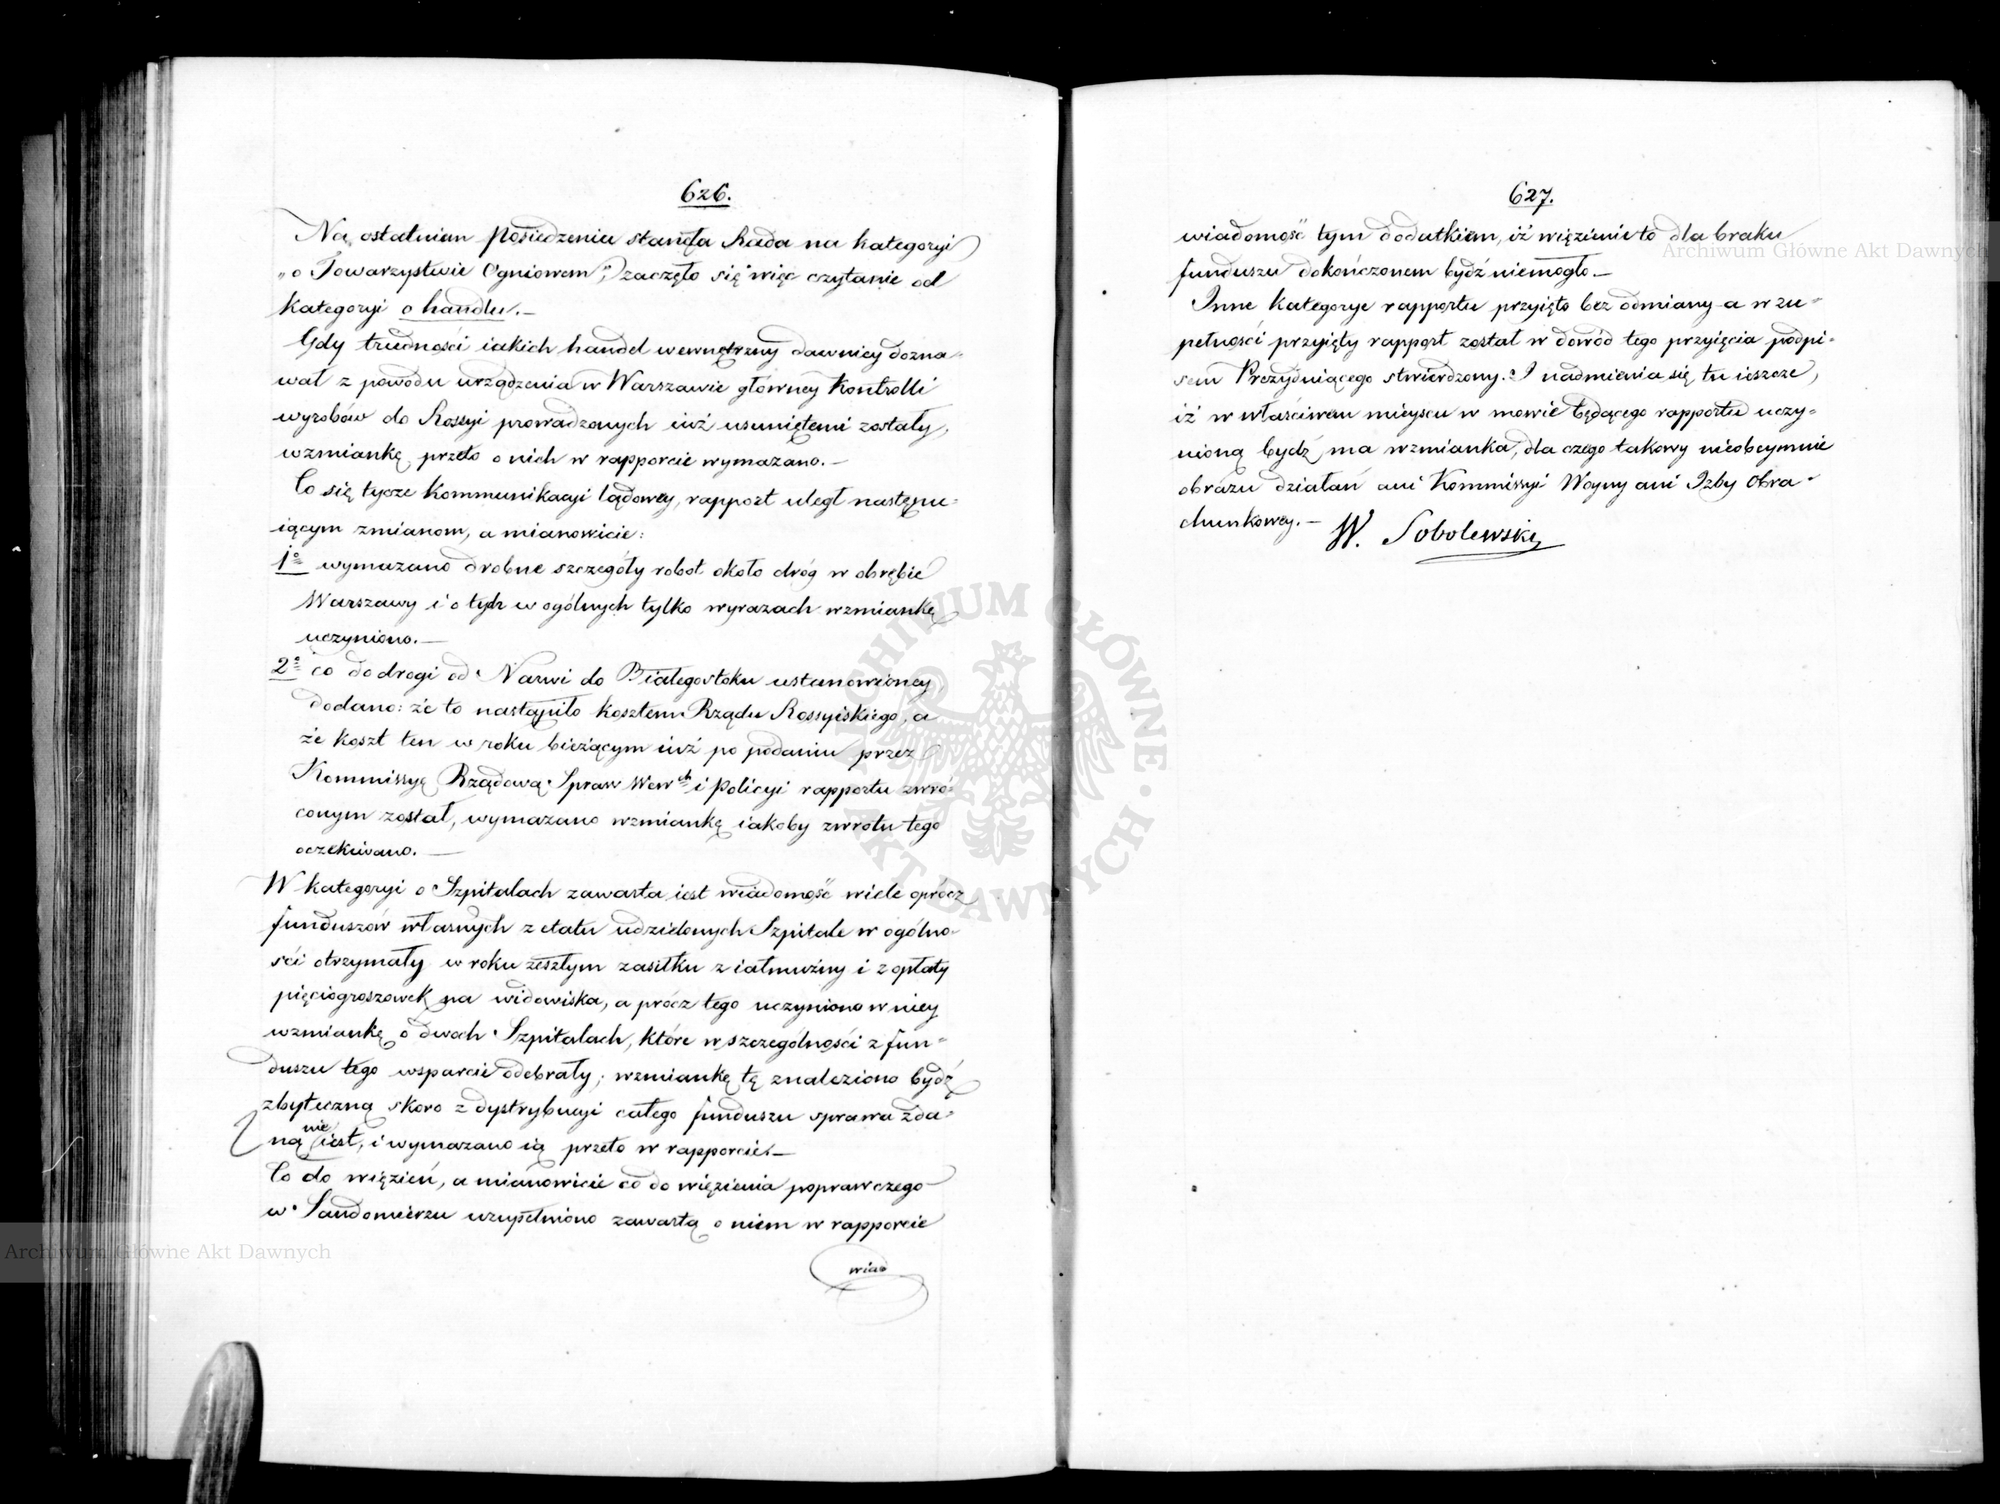 626.
Na ostatniem posiedzeniu stanęła Rada na kategoryi
„o Towarzystwie Ogniowem", zaczęło się więc czytanie od
kategoryi o handlu.—
Gdy trudności iakich handel wewnętrzny dawniey dozna-
wał z powodu urządzenia w Warszawie główney Kontrolli
wyrobów do Rossyi prowadzonych iuż usuniętemi zostały,
wzmiankę przeto o nich w rapporcie wymazano.—
Co się tycze Kommunikacyi lądowey, rapport uległ następu-
iącym zmianom, a mianowicie:
1o wymazano drobne szczegóły robot około dróg w obrębie
Warszawy i o tych w ogólnych tylko wyrazach wzmiankę
uczyniono.—
2o co do drogi od Narwi do Białegostoku ustanowioney
dodano: że to nastąpiło kosztem Rządu Rossyiskiego, a
że koszt ten w roku bieżącym iuż po podaniu przez
Kommissyę Rządową Spraw Wewch i Policyi rapportu zwró-
conym został, wymazano wzmiankę iakoby zwrotu tego
oczekiwano.—
W kategoryi o Szpitalach zawarta iest wiadomość wiele oprócz
funduszów własnych z etatu udzielonych Szpitale w ogólno-
ści otrzymały w roku zeszłym zasiłku z iałmużny i z opłaty
pięciogroszowek na widowiska, a prócz tego uczyniono w niey
wzmiankę o dwóch Szpitalach, które w szczególności z fun-
duszu tego wsparcie odebrały; wzmiankę tę znaleziono bydź
zbyteczną skoro z dystrybucyi całego funduszu sprawa zda-
ną nie iest, i wymazano ią przeto w rapporcie.—
Co do więzień, a mianowicie co do więzienia poprawczego
w Sandomierzu uzupełniono zawartą o niem w rapporcie
wiad
627.
wiadomość tym dodatkiem, iż więzienie to dla braku
funduszu dokończonem bydź niemogło.—
Inne kategorye rapportu przyięto bez odmiany a w zu-
pełności przyięty rapport został w dowód tego przyięcia podpi-
sem Prezyduiącego stwierdzony. I nadmienia się tu ieszcze,
iż w właściwem mieyscu w mowie będącego rapportu uczy-
nioną bydź ma wzmianka, dla czego takowy nieobeymuie
obrazu działań ani Kommissyi Woyny ani Izby Obra-
chunkowey.— W. Sobolewski
Archiwum Główne Akt Dawnych
Archiwum Główne Akt Dawnych
ARCHIWUM GŁÓWNE AKT DAWNYCH